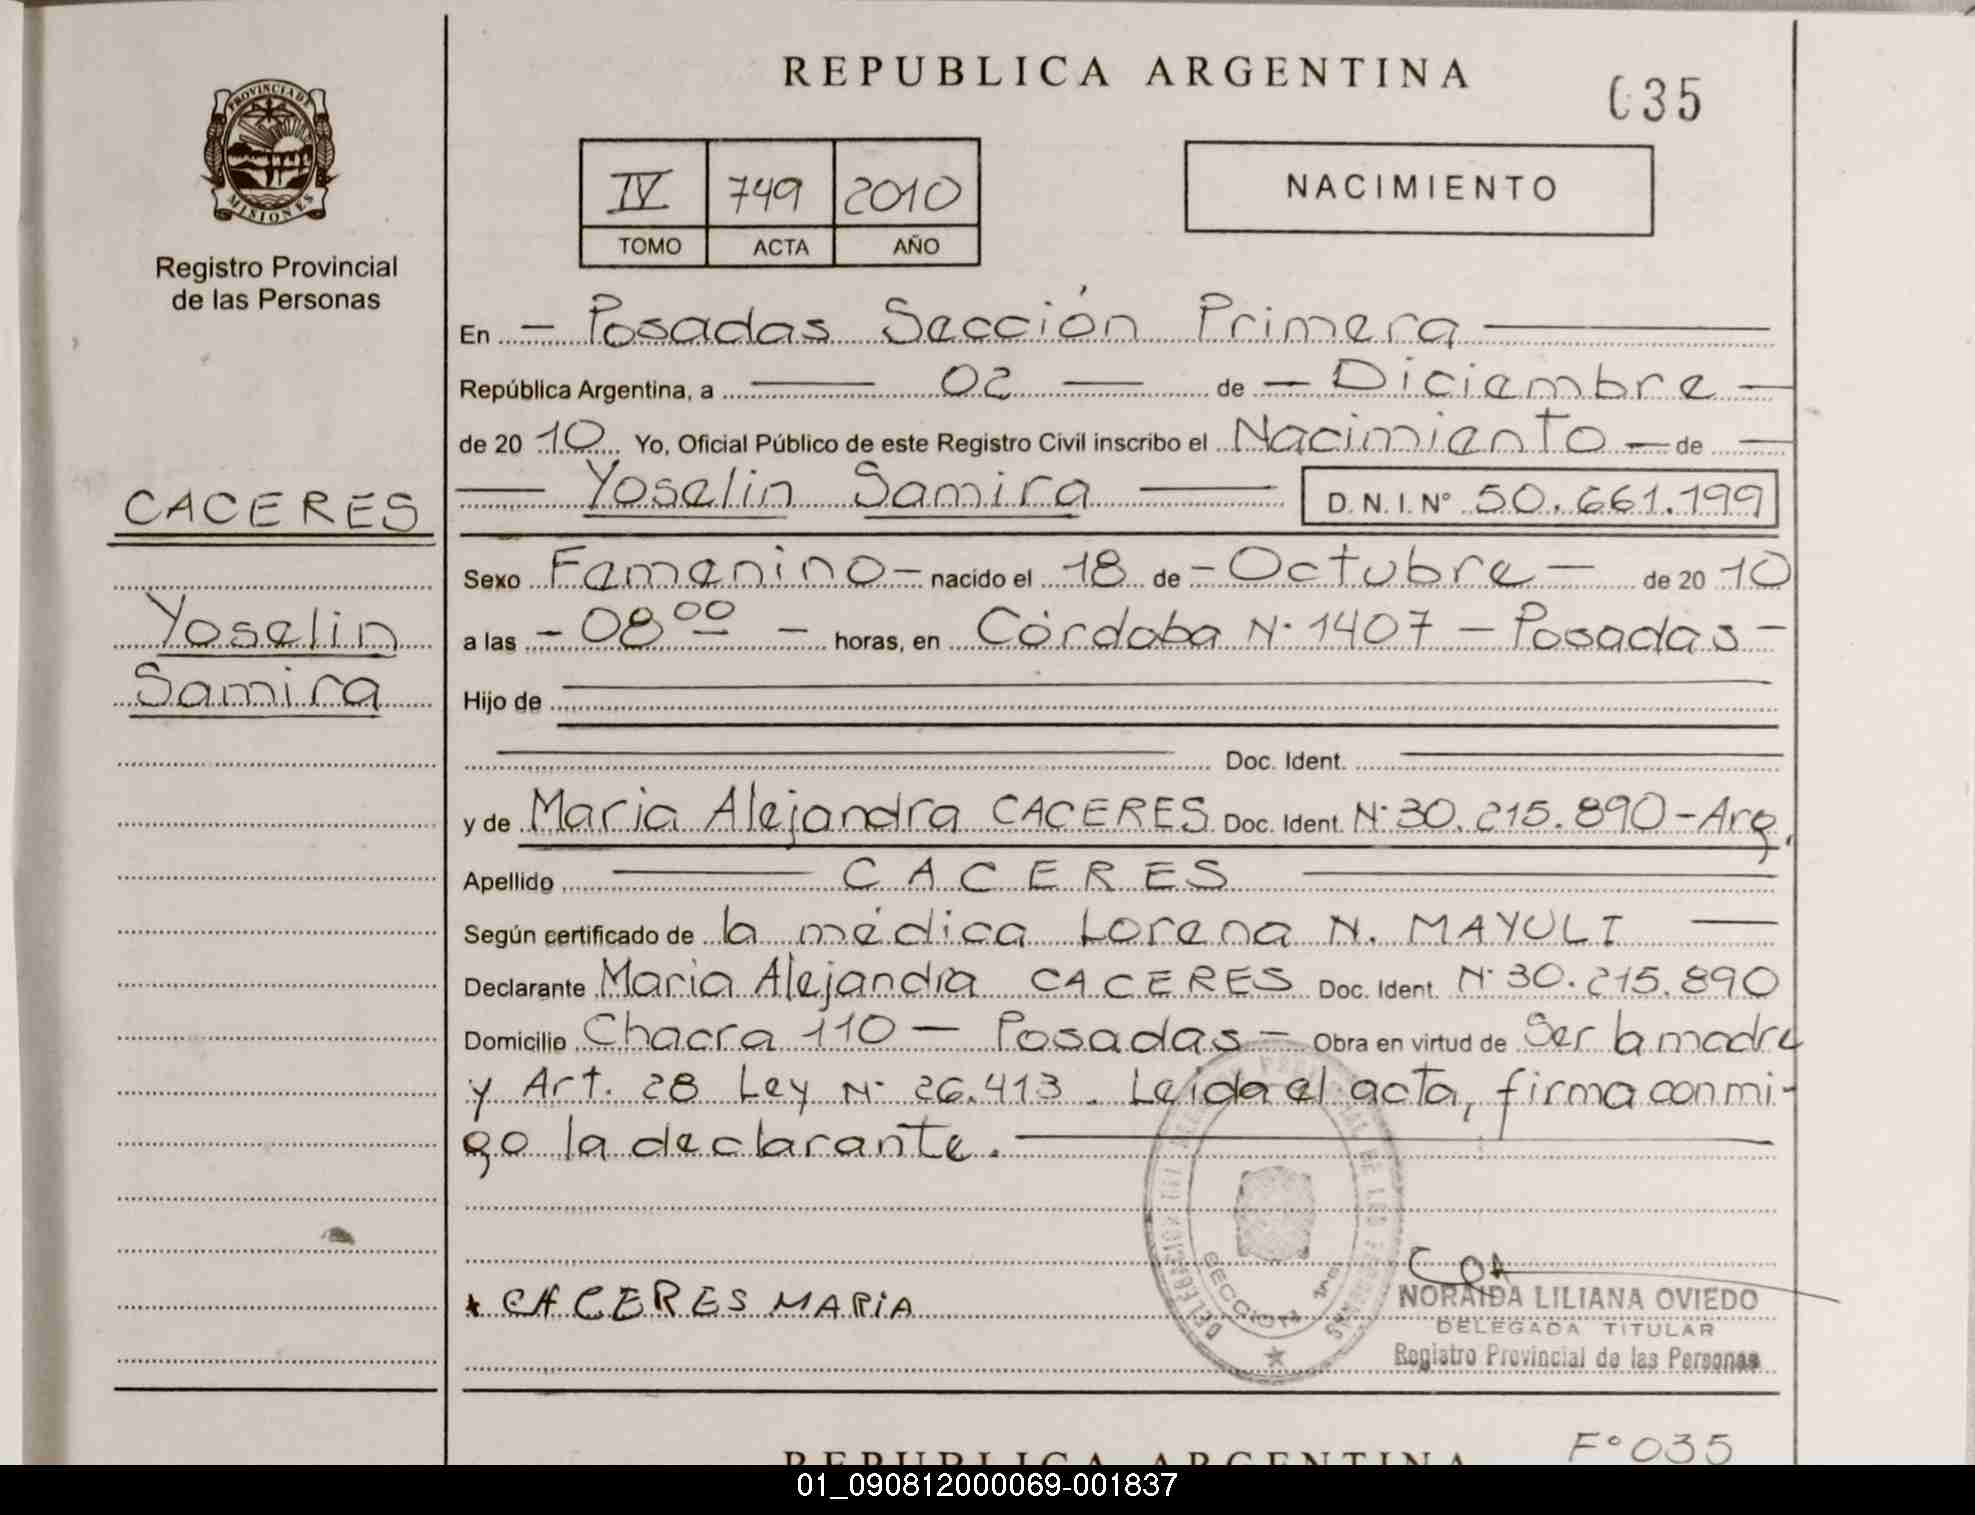 REPUBLICA ARGENTINA
035
PROVINCIA DE
MISIONES
Registro Provincial
de las Personas
IV 749 2010
TOMO ACTA AÑO
NACIMIENTO
En - Posadas Sección Primera
República Argentina, a 02 de - Diciembre -
de 20 10 Yo, Oficial Público de este Registro Civil inscribo el Nacimiento - de
Yoselin Samira D.N.I.N° 50.661.199
CACERES
Yoselin
Samira
Sexo Femenino - nacido el 18 de - Octubre - de 20 10
a las - 08 00 - horas, en Córdoba N° 1407 - Posadas -
Hijo de
Doc. Ident.
y de Maria Alejandra CACERES Doc. Ident. N° 30.215.890 - Arg.
Apellido CACERES
Según certificado de la médica Lorena N. MAYULI
Declarante Maria Alejandra CACERES Doc. Ident. N° 30.215.890
Domicilio Chacra 110 - Posadas - Obra en virtud de Ser la madre
y Art. 28 Ley N° 26.413. Leida el acta, firma conmi-
go la declarante.
CACERES MARIA
SECCION 1ra
NORAIDA LILIANA OVIEDO
DELEGADA TITULAR
Registro Provincial de las Personas
F° 035
REPUBLICA ARGENTINA
01_090812000069-001837